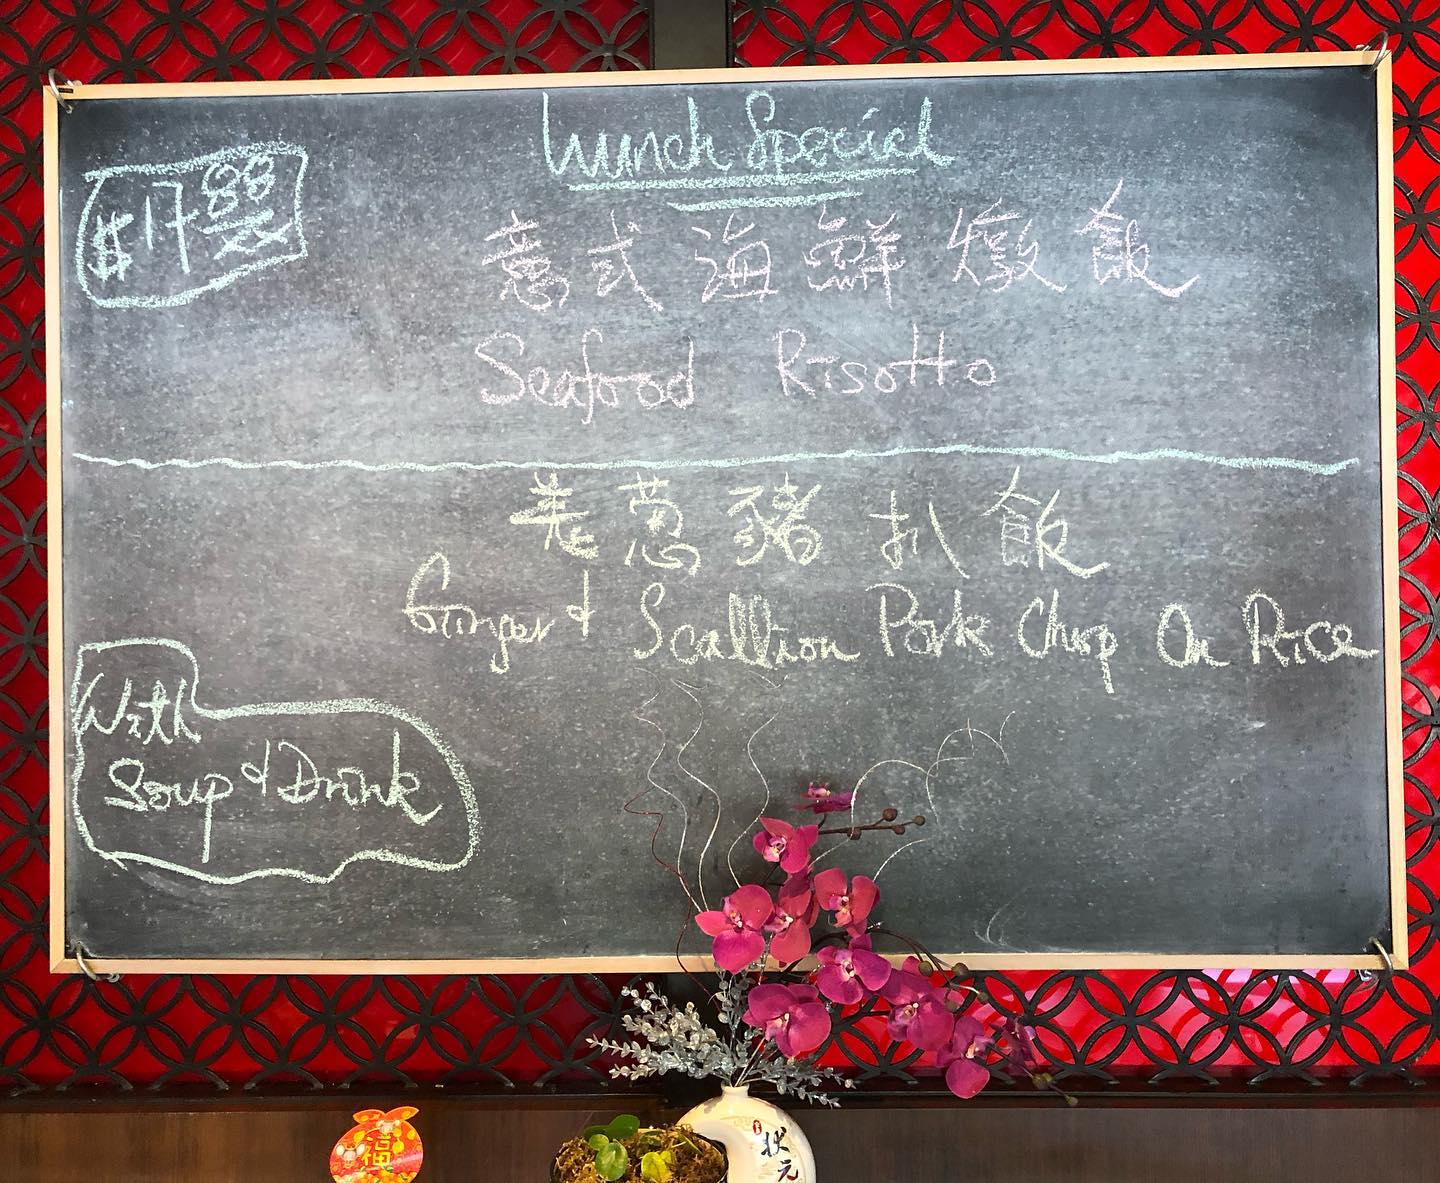 Lunch Special
$17.88
意式海鮮燉飯
Seafood Risotto
羗蔥豬扒飯
Ginger & Scallion Pork Chop On Rice
With
Soup & Drink
福
状
元